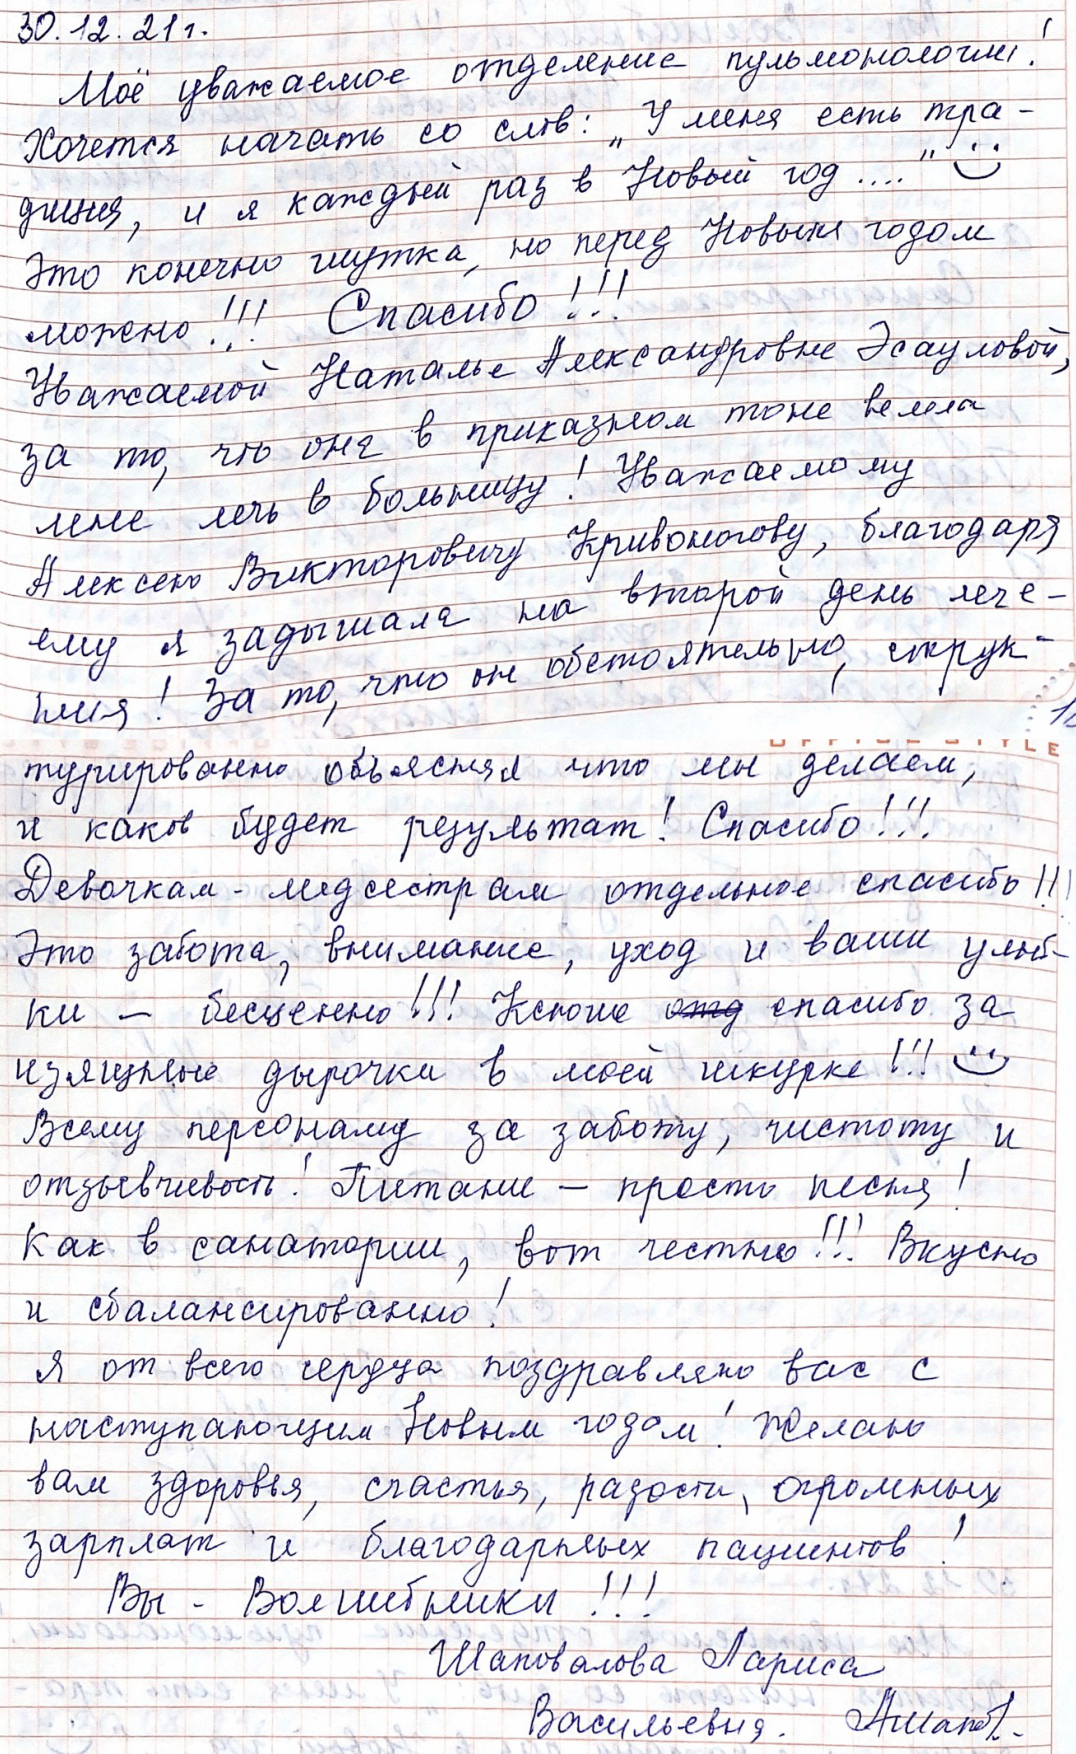 30.12.21г.
Моё уважаемое отделение пульмонологии!
Хочется начать со слов: „У меня есть тра-
диция, и я каждый раз в Новый год...."
Это конечно шутка, но перед Новым годом
можно!!! Спасибо!!!
Уважаемой Наталье Александровне Эсауловой,
за то, что она в приказном тоне велела
мне лечь в больницу! Уважаемому
Алексею Викторовичу Кривоногову, благодаря
ему я задышала на второй день лече-
ния! За то, что он обстоятельно, струк-
OFFICE STYLE
турированно объяснял что мы делаем,
и каков будет результат! Спасибо!!!
Девочкам - медсестрам отдельное спасибо!!!
Это забота, внимание, уход и ваши улыб-
ки — бесценно!!! Ксюше отд спасибо за
изящные дырочки в моей шкурке!!!
Всему персоналу за заботу, чистоту и
отзывчивость! Питание — просто песня!
Как в санатории, вот честно!!! Вкусно
и сбалансированно!
Я от всего сердца поздравляю вас с
наступающим Новым годом! Желаю
вам здоровья, счастья, радости, огромных
зарплат и благодарных пациентов!
Вы - Волшебники!!!
Шаповалова Лариса
Васильевна.